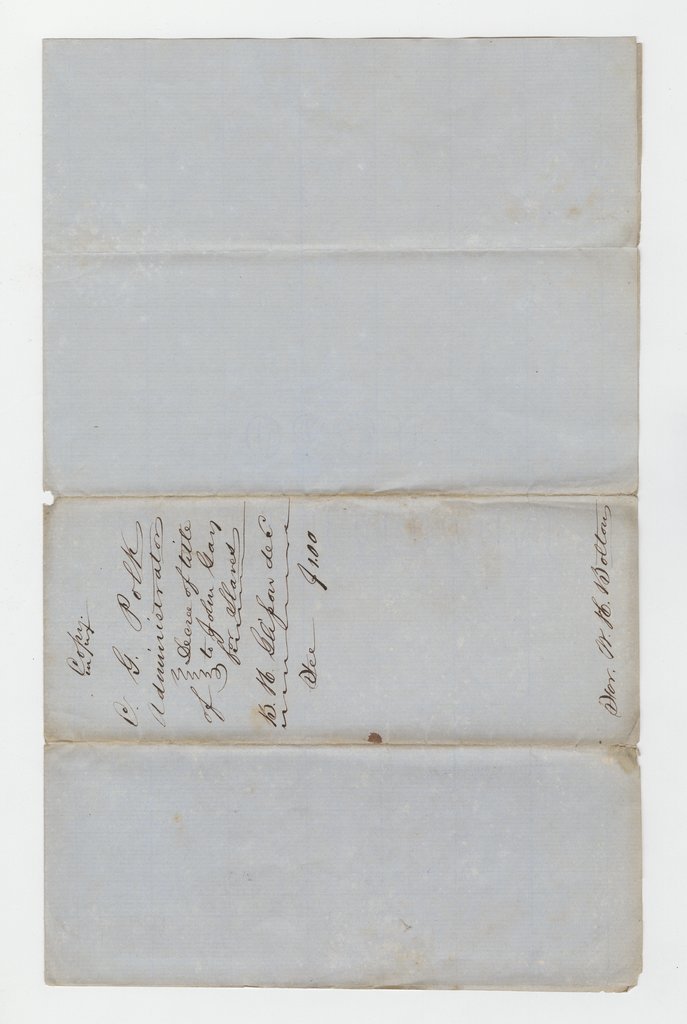 Copy
C. G. Polk
Administrator
Decree of title
of to John Gay
for Slaves
B. H. dec
Fee $1.00
For. W. H. Bolton